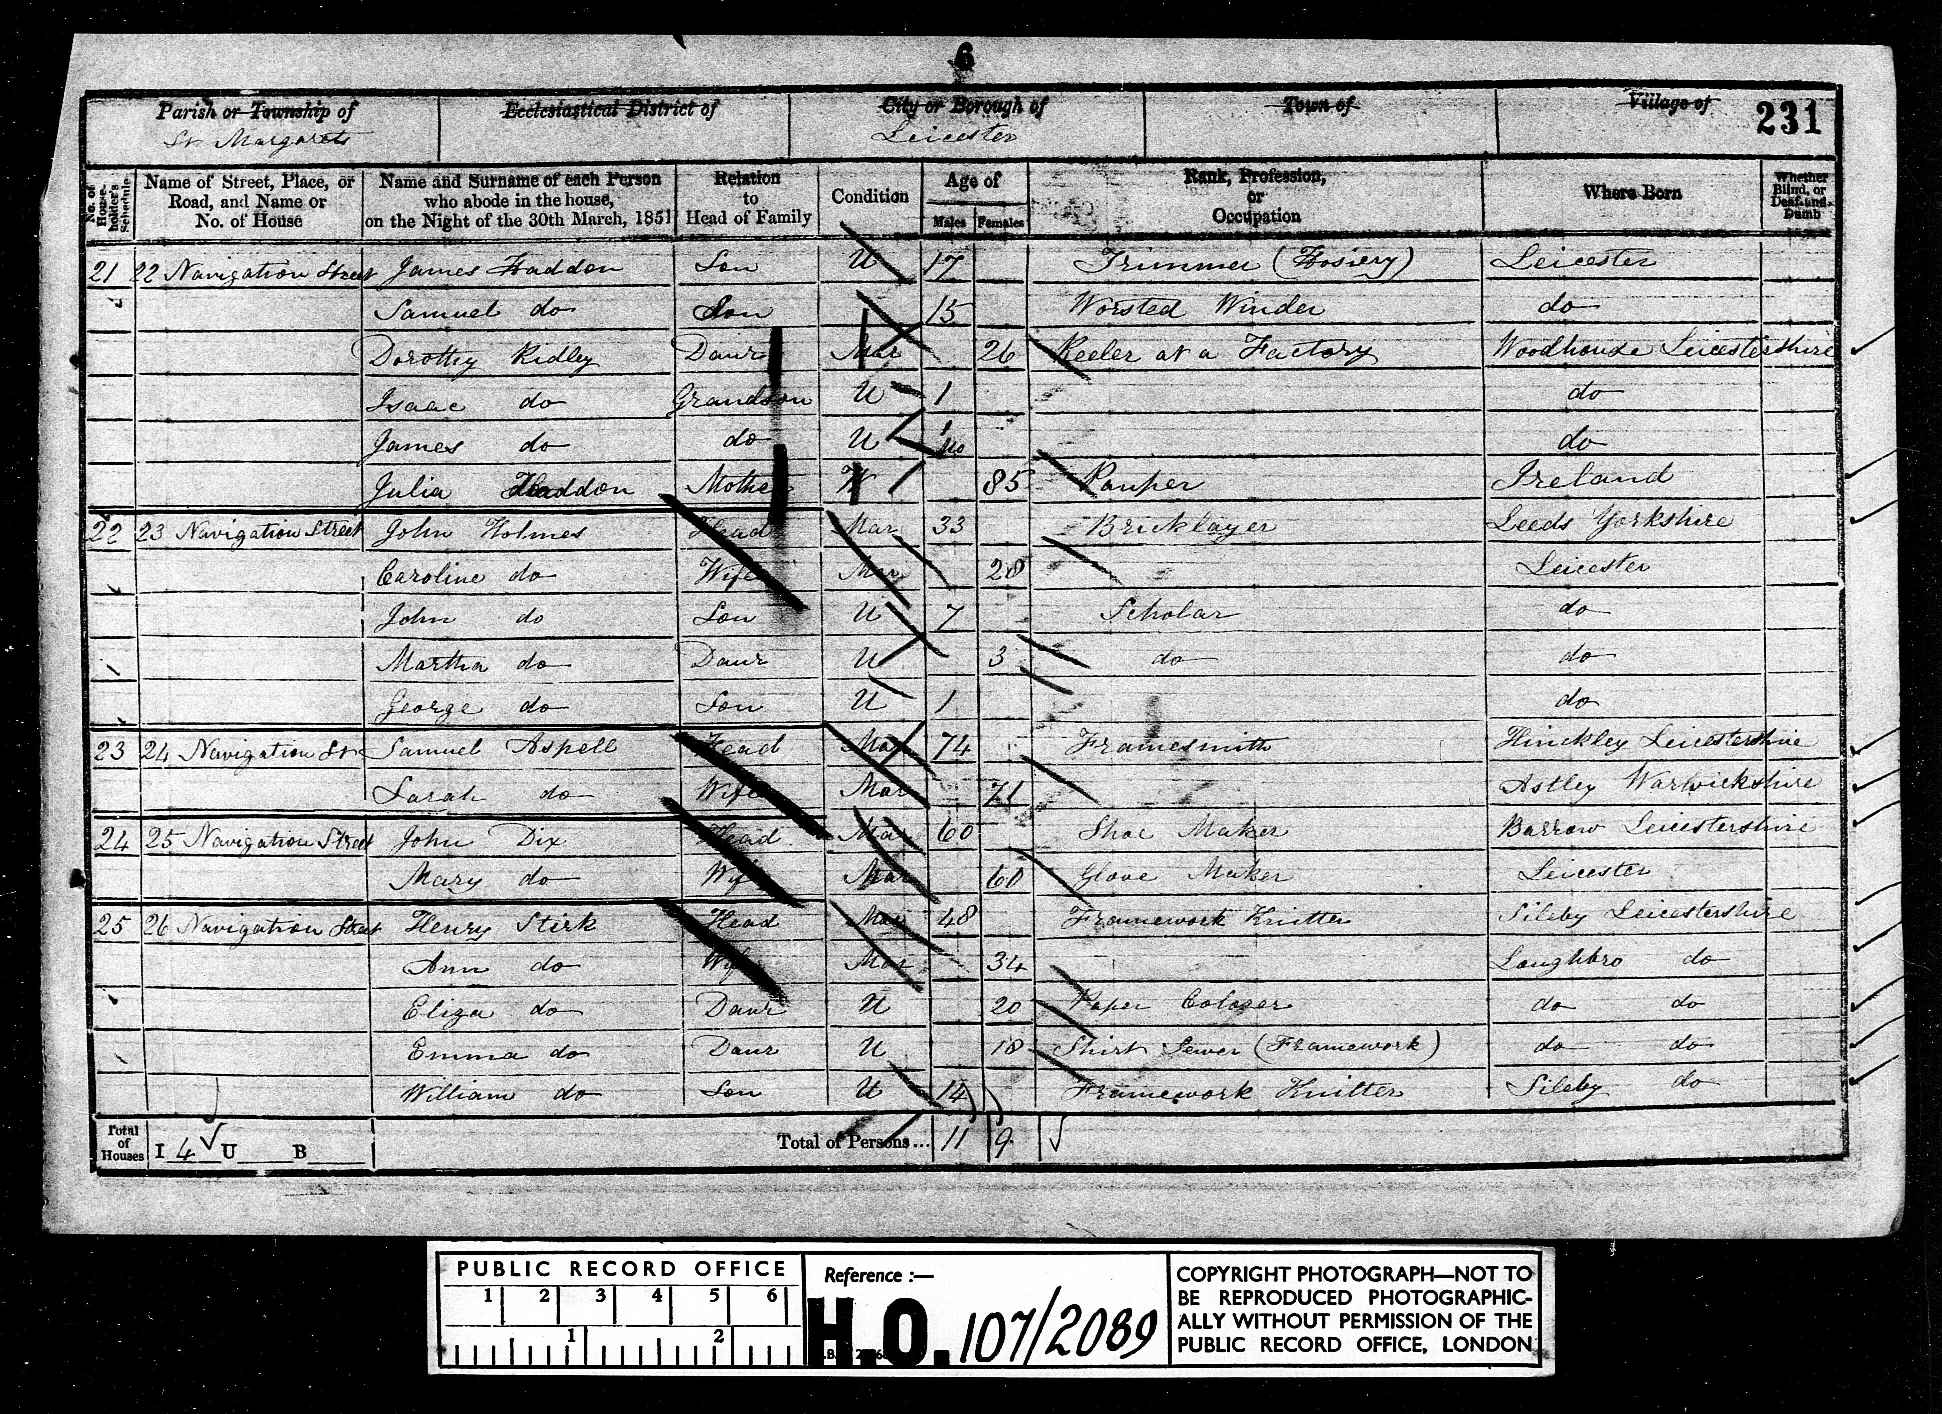 6
Parish or Township of Ecclesiastical District of City or Borough of Town of Village of 231
St Margarets Leicester
No. of House-holder's Schedule Name of Street, Place, or Road, and Name or No. of House Name and Surname of each Person who abode in the house, on the Night of the 30th March, 1851 Relation to Head of Family Condition Age of Males Females Rank, Profession, or Occupation Where Born Whether Blind, or Deaf-and-Dumb
21 22 Navigation Street James Haddon Son U 17 Trimmer (Hosiery) Leicester
Samuel do Son 15 Worsted Winder do
Dorothy Ridley Daur Mar 26 Reeler at a Factory Woodhouse Leicestershire
Isaac do Grandson U 1 do
James do do U do
Julia Haddon Mother W 85 Pauper Ireland
22 23 Navigation Street John Holmes Head Mar 33 Bricklayer Leeds Yorkshire
Caroline do Wife Mar 28 Leicester
John do Son U 7 Scholar do
Martha do Daur U 3 do do
George do Son U 1 do
23 24 Navigation St Samuel Aspell Head Mar 74 Framesmith Hinckley Leicestershire
Sarah do Wife Mar 71 Astley Warwickshire
24 25 Navigation Street John Dix Head Mar 60 Shoe Maker Barrow Leicestershire
Mary do Wife Mar 60 Glove Maker Leicester
25 26 Navigation Street Henry Stirk Head Mar 48 Framework Knitter Sileby Leicestershire
Ann do Wife Mar 34 Loughbro do
Eliza do Daur U 20 Paper Colorer do do
Emma do Daur U 18 Shirt Sewer (Framework) do do
William do Son U 14 Framework Knitter Sileby do
Total of Houses I 4 U B Total of Persons... 11 9
PUBLIC RECORD OFFICE
1 2 3 4 5 6
1 2
Reference :—
H.O. 107/2089
COPYRIGHT PHOTOGRAPH—NOT TO
BE REPRODUCED PHOTOGRAPHIC-
ALLY WITHOUT PERMISSION OF THE
PUBLIC RECORD OFFICE, LONDON